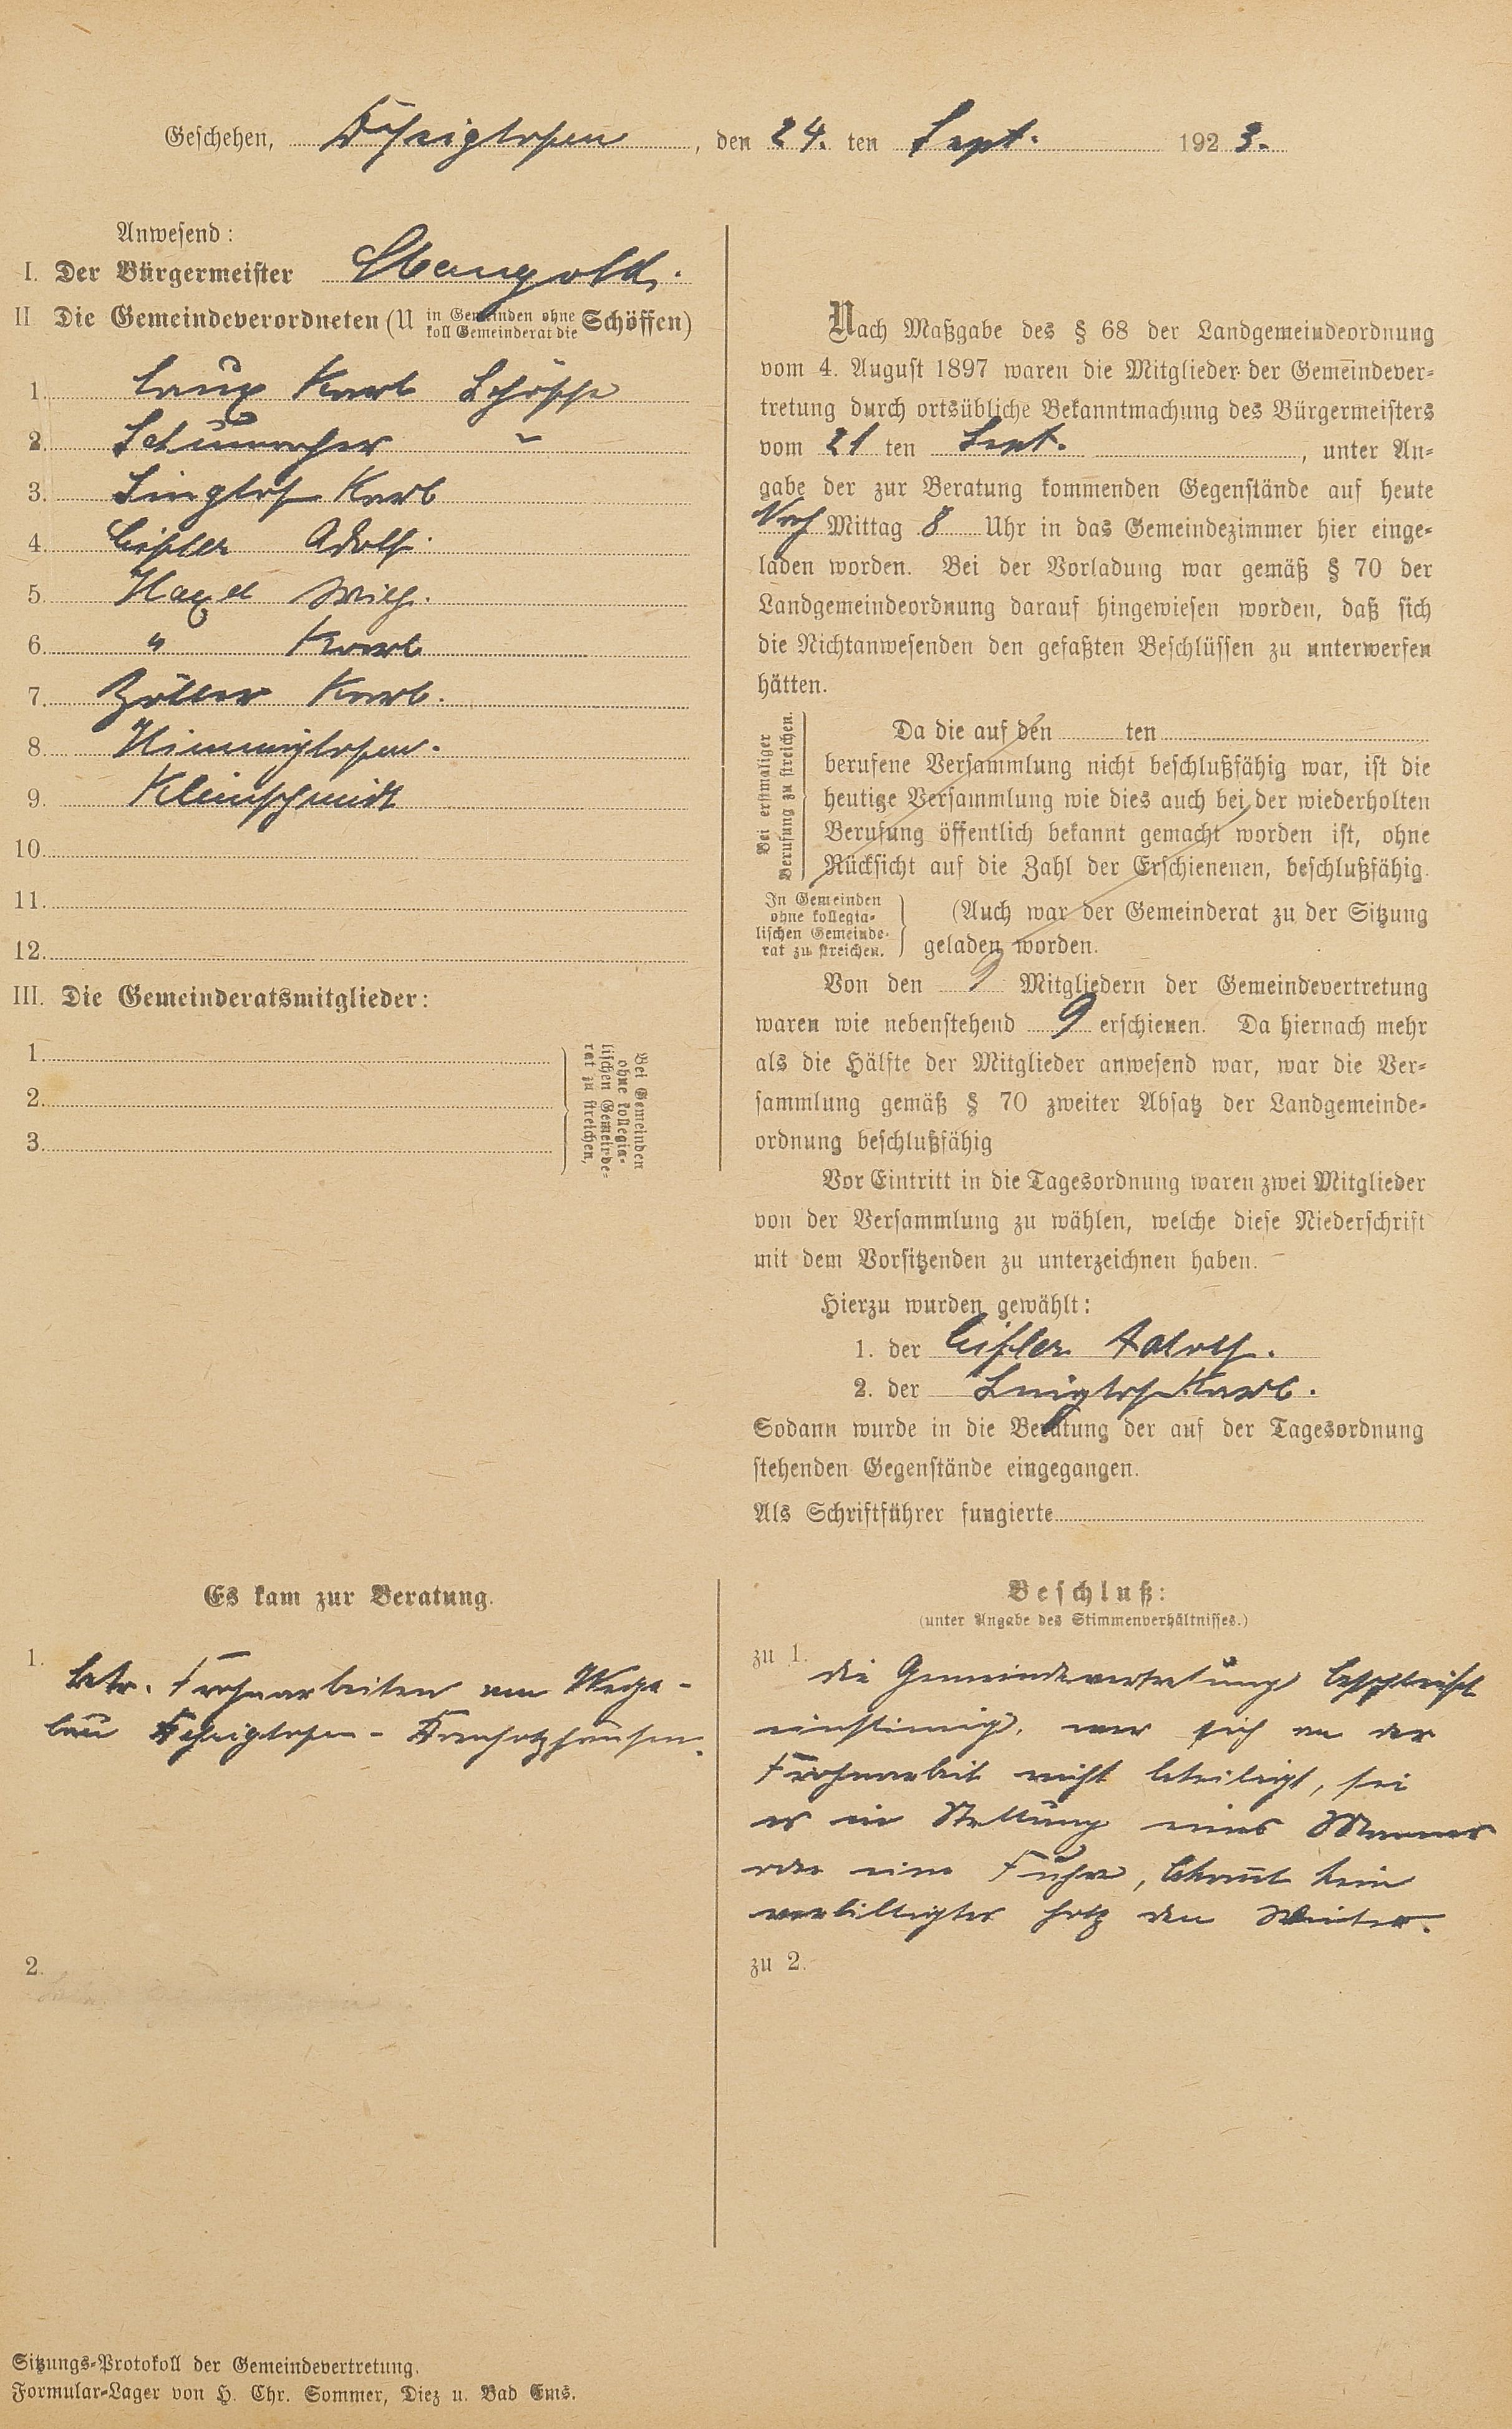 Geschehen, Dösighofen, den 24. ten Sept. 1923.
Anwesend:
I. Der Bürgermeister Mangold.
II Die Gemeindeverordneten (U in Gemeinden ohne koll Gemeinderat die Schöffen)
1. Laux Karl Schöffe
2. Schumacher "
3. Singhof Karl
4. Eisler Adolf.
5. Hagel Wilh.
6. " Karl
7. Zöller Karl.
8. Himmighofen.
9. Kleinschmidt
10.
11.
12.
III. Die Gemeinderatsmitglieder:
1.
2.
3.
Bei Gemeinden
ohne kollegia-
lischen Gemeinde-
rat zu streichen,
Nach Maßgabe des § 68 der Landgemeindeordnung
vom 4. August 1897 waren die Mitglieder der Gemeindever-
tretung durch ortsübliche Bekanntmachung des Bürgermeisters
vom 21 ten Sept. , unter An-
gabe der zur Beratung kommenden Gegenstände auf heute
Nach Mittag 8 Uhr in das Gemeindezimmer hier einge-
laden worden. Bei der Vorladung war gemäß § 70 der
Landgemeindeordnung darauf hingewiesen worden, daß sich
die Nichtanwesenden den gefaßten Beschlüssen zu unterwerfen
hätten.
Bei erstmaliger
Berufung zu streichen.
Da die auf den ten
berufene Versammlung nicht beschlußfähig war, ist die
heutige Versammlung wie dies auch bei der wiederholten
Berufung öffentlich bekannt gemacht worden ist, ohne
Rücksicht auf die Zahl der Erschienenen, beschlußfähig.
In Gemeinden
ohne kollegia-
lischen Gemeinde-
rat zu streichen.
(Auch war der Gemeinderat zu der Sitzung
geladen worden.
Von den 9 Mitgliedern der Gemeindevertretung
waren wie nebenstehend 9 erschienen. Da hiernach mehr
als die Hälfte der Mitglieder anwesend war, war die Ver-
sammlung gemäß § 70 zweiter Absatz der Landgemeinde-
ordnung beschlußfähig
Vor Eintritt in die Tagesordnung waren zwei Mitglieder
von der Versammlung zu wählen, welche diese Niederschrift
mit dem Vorsitzenden zu unterzeichnen haben.
Hierzu wurden gewählt:
1. der Eisler Adolf.
2. der Singhof Karl.
Sodann wurde in die Beratung der auf der Tagesordnung
stehenden Gegenstände eingegangen.
Als Schriftführer fungierte
Es kam zur Beratung.
1.
betr. Frohnarbeiten am Wege-
bau
2.
Beschluß:
(unter Angabe des Stimmenverhältnisses.)
zu 1. die Gemeindevertretung beschließt
einstimmig, wer sich an der
Frohnarbeit nicht beteiligt, sei
es in Stellung eines Mannes
oder eine Fuhre, bekommt kein
verbilligtes Holz den Winter.
zu 2.
Sitzungs-Protokoll der Gemeindevertretung.
Formular-Lager von H. Chr. Sommer, Diez u. Bad Ems.